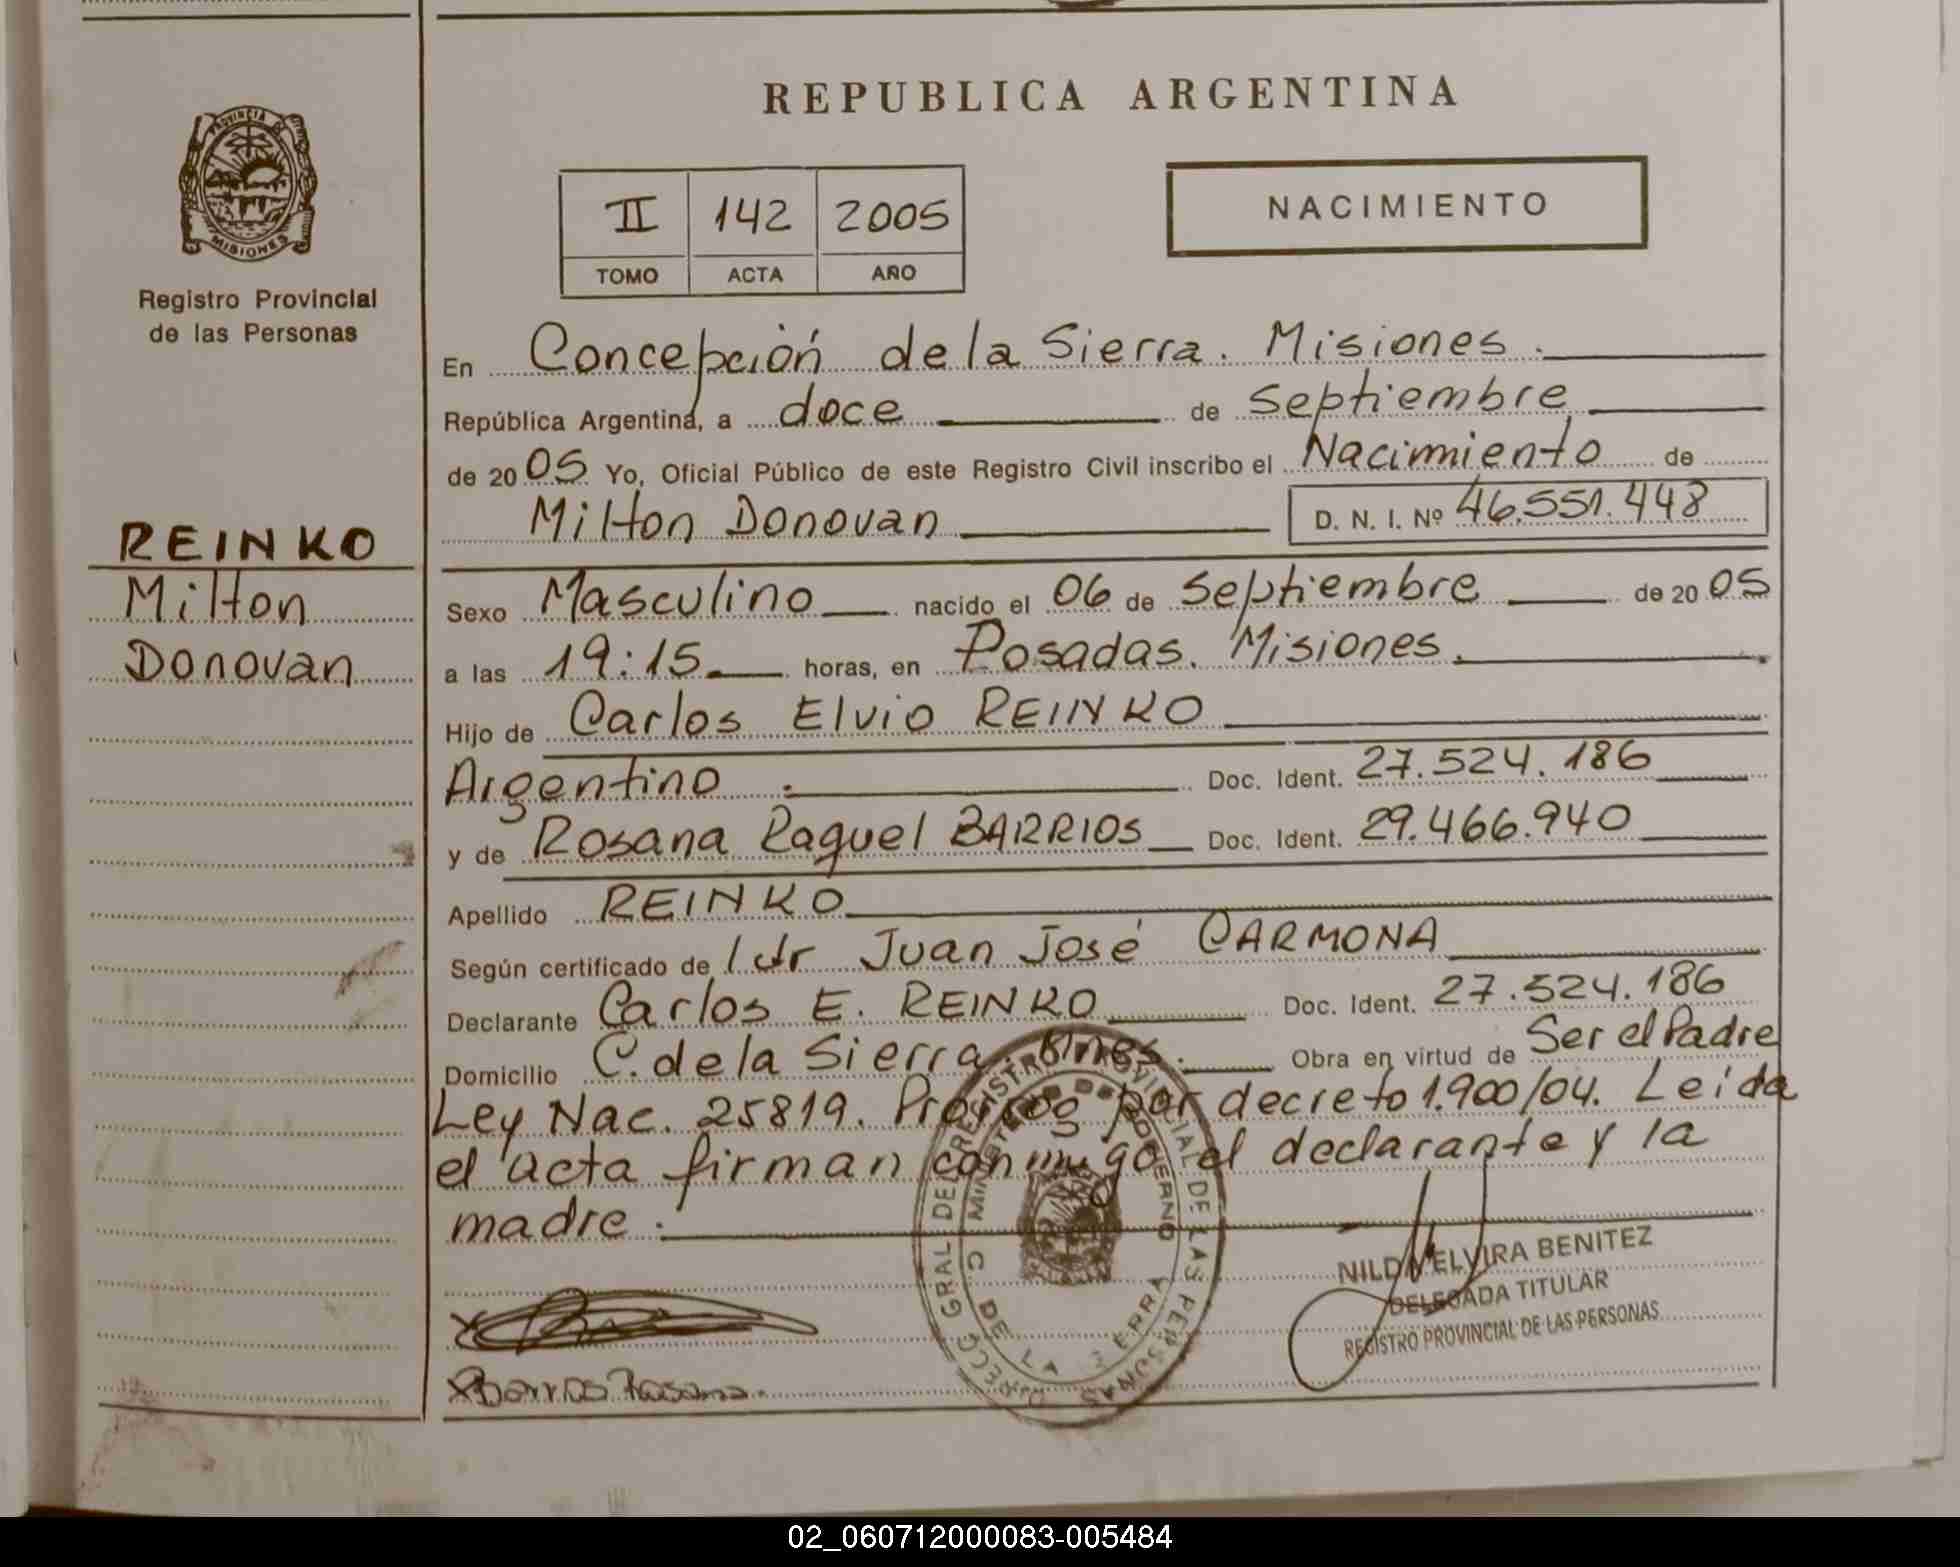 REPUBLICA ARGENTINA
PROVINCIA DE
MISIONES
Registro Provincial
de las Personas
II 142 2005
TOMO ACTA AÑO
NACIMIENTO
REINKO
Milton
Donovan
En Concepción de la Sierra. Misiones.
República Argentina, a doce de Septiembre
de 2005 Yo, Oficial Público de este Registro Civil inscribo el Nacimiento de
Milton Donovan D. N. I. Nº 46.551.448
Sexo Masculino nacido el 06 de Septiembre de 2005
a las 19:15 horas, en Posadas. Misiones.
Hijo de Carlos Elvio REINKO
Argentino. Doc. Ident. 27.524.186
y de Rosana Raquel BARRIOS Doc. Ident. 29.466.940
Apellido REINKO
Según certificado de Juan José CARMONA
Declarante Carlos E. REINKO Doc. Ident. 27.524.186
Domicilio C. de la Sierra. Mnes. Obra en virtud de Ser el Padre
Ley Nac. 25819. por decreto 1.900/04. Leida
el acta firman conmigo el declarante y la
madre.
DIRECC GRAL DEL REGISTRO PROVINCIAL DE LAS PERSONAS
MINISTERIO DE GOBIERNO
C. DE LA SIERRA
NILDA ELVIRA BENITEZ
DELEGADA TITULAR
REGISTRO PROVINCIAL DE LAS PERSONAS
Barrios Rosana
02_060712000083-005484